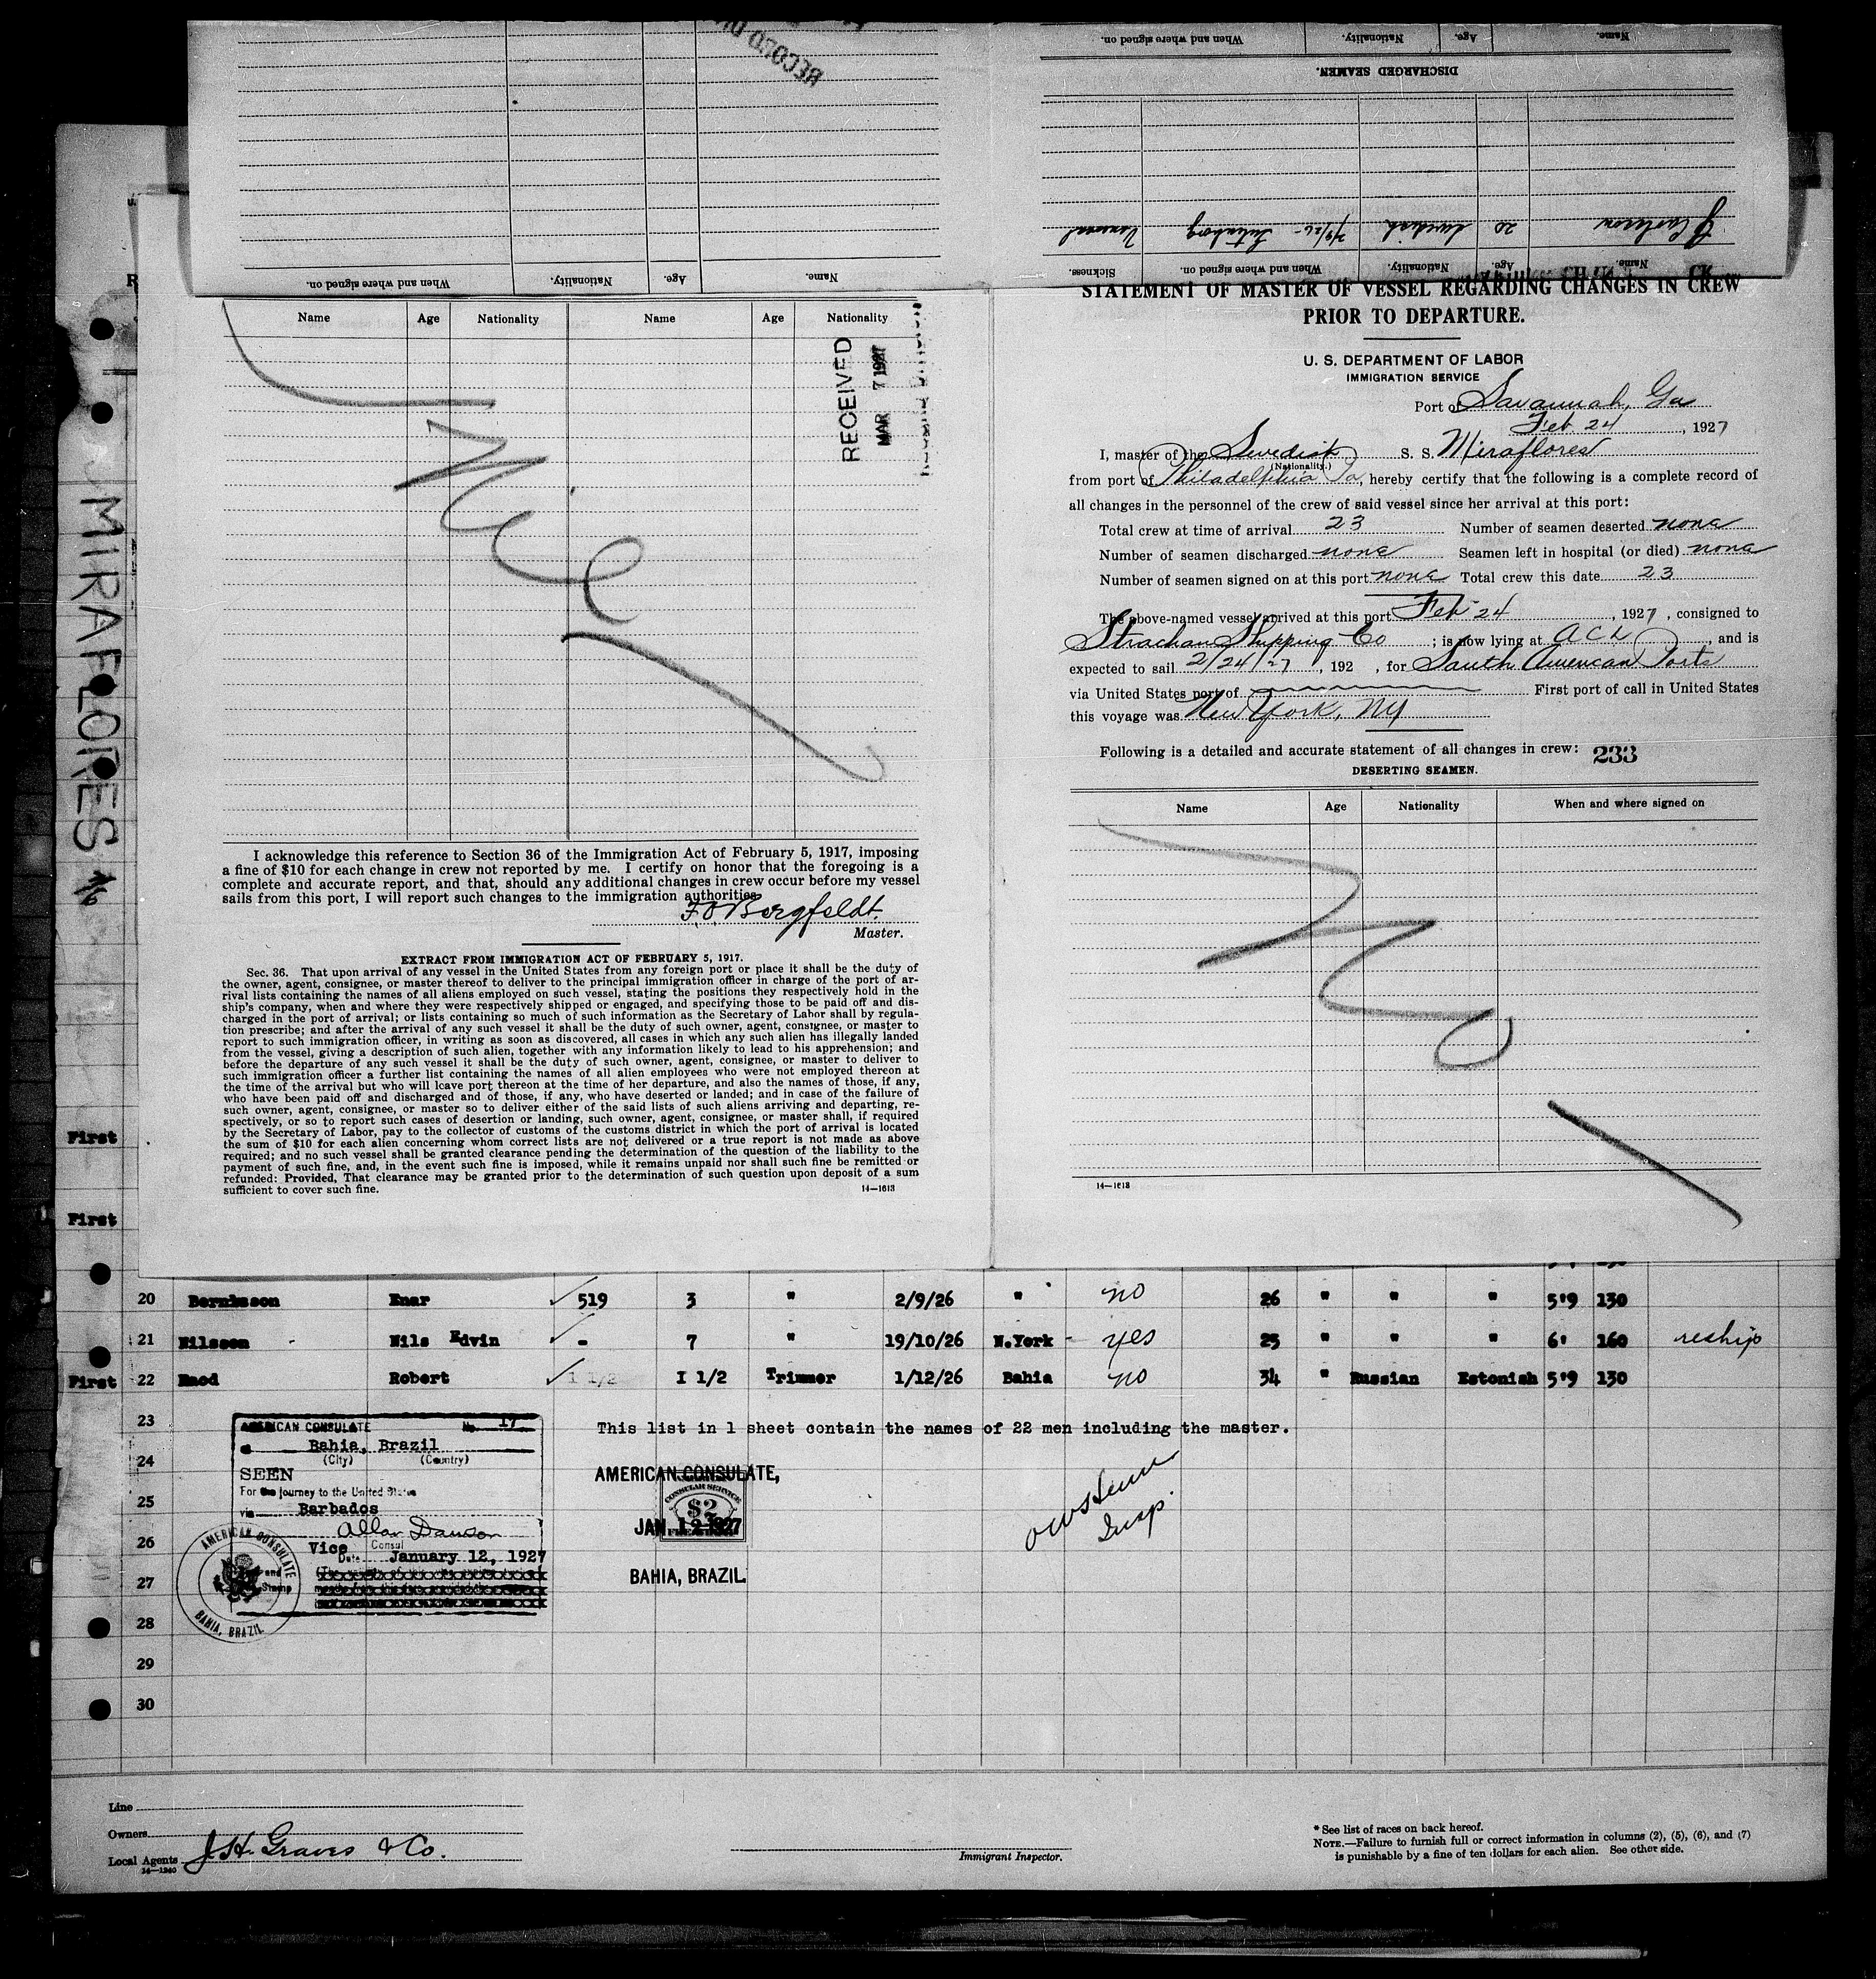 RECORD DI
When and where signed on.
Nationality.
Age.
Name.
DISCHARGED SEAMEN.
Name.
Age.
Nationality.
When and where signed on.
Sickness.
20 Swedish
Name.
Age.
Nationality.
When and where signed on.
MIRAFLORES
Name Age Nationality Name Age Nationality
RECEIVED
MAR 7 1927
Nil
I acknowledge this reference to Section 36 of the Immigration Act of February 5, 1917, imposing
a fine of $10 for each change in crew not reported by me. I certify on honor that the foregoing is a
complete and accurate report, and that, should any additional changes in crew occur before my vessel
sails from this port, I will report such changes to the immigration authorities.
F O Bergfeldt.
Master.
EXTRACT FROM IMMIGRATION ACT OF FEBRUARY 5, 1917.
Sec. 36. That upon arrival of any vessel in the United States from any foreign port or place it shall be the duty of
the owner, agent, consignee, or master thereof to deliver to the principal immigration officer in charge of the port of ar-
rival lists containing the names of all aliens employed on such vessel, stating the positions they respectively hold in the
ship's company, when and where they were respectively shipped or engaged, and specifying those to be paid off and dis-
charged in the port of arrival; or lists containing so much of such information as the Secretary of Labor shall by regula-
tion prescribe; and after the arrival of any such vessel it shall be the duty of such owner, agent, consignee, or master to
report to such immigration officer, in writing as soon as discovered, all cases in which any such alien has illegally landed
from the vessel, giving a description of such alien, together with any information likely to lead to his apprehension; and
before the departure of any such vessel it shall be the duty of such owner, agent, consignee, or master to deliver to
such immigration officer a further list containing the names of all alien employees who were not employed thereon at
the time of the arrival but who will leave port thereon at the time of her departure, and also the names of those, if any,
who have been paid off and discharged and of those, if any, who have deserted or landed; and in case of the failure of
such owner, agent, consignee, or master so to deliver either of the said lists of such aliens arriving and departing, re-
spectively, or so to report such cases of desertion or landing, such owner, agent, consignee, or master shall, if required
by the Secretary of Labor, pay to the collector of customs of the customs district in which the port of arrival is located
the sum of $10 for each alien concerning whom correct lists are not delivered or a true report is not made as above
required; and no such vessel shall be granted clearance pending the determination of the question of the liability to the
payment of such fine, and, in the event such fine is imposed, while it remains unpaid nor shall such fine be remitted or
refunded: Provided, That clearance may be granted prior to the determination of such question upon deposit of a sum
sufficient to cover such fine.
14—1613
STATEMENT OF MASTER OF VESSEL REGARDING CHANGES IN CREW
PRIOR TO DEPARTURE.
U. S. DEPARTMENT OF LABOR
IMMIGRATION SERVICE
Port of Savannah, Ga
Feb. 24, 1927
I, master of the Swedish S. S. Miraflores
(Nationality.)
from port of Philadelphia Pa, hereby certify that the following is a complete record of
all changes in the personnel of the crew of said vessel since her arrival at this port:
Total crew at time of arrival 23 Number of seamen deserted none
Number of seamen discharged none Seamen left in hospital (or died) none
Number of seamen signed on at this port none Total crew this date 23
The above-named vessel arrived at this port Feb 24, 1927, consigned to
Strachan Shipping Co; is now lying at A C L, and is
expected to sail 2/24/27, 192 , for South American Ports
via United States port of First port of call in United States
this voyage was New York, NY
Following is a detailed and accurate statement of all changes in crew: 233
DESERTING SEAMEN.
Name Age Nationality When and where signed on
Nil
14—1613
First
First
20 Berndsson Enar 519 3 " 2/9/26 " no 26 " " " 5'9 130
21 Nilsson - Nils Edvin - 7 " 19/10/26 N.York - yes 25 " " " 6' 160 reship
First 22 Raod Robert 1 1/2 I 1/2 Trimmer 1/12/26 Bahia no 34 " Russian Estonish 5'9 130
23 This list in 1 sheet contain the names of 22 men including the master.
24
25
26
27
28
29
30
AMERICAN CONSULATE No. 17
Bahia, Brazil
(City) (Country)
SEEN
For the journey to the United States
via Barbados
Allan Dawson
Vice Consul
Date January 12, 1927
and Stamp
AMERICAN CONSULATE
BAHIA, BRAZIL
AMERICAN CONSULATE,
CONSULAR SERVICE
$2
JAN 12 1927
BAHIA, BRAZIL.
Insp.
Line
Owners
Local Agents J H. Graves & Co.
14—1240
Immigrant Inspector.
* See list of races on back hereof.
NOTE.—Failure to furnish full or correct information in columns (2), (5), (6), and (7)
is punishable by a fine of ten dollars for each alien. See other side.